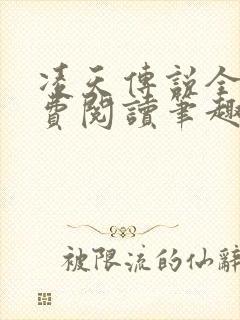 凌天傳說全
費閱讀筆趣
被限流的仙辭